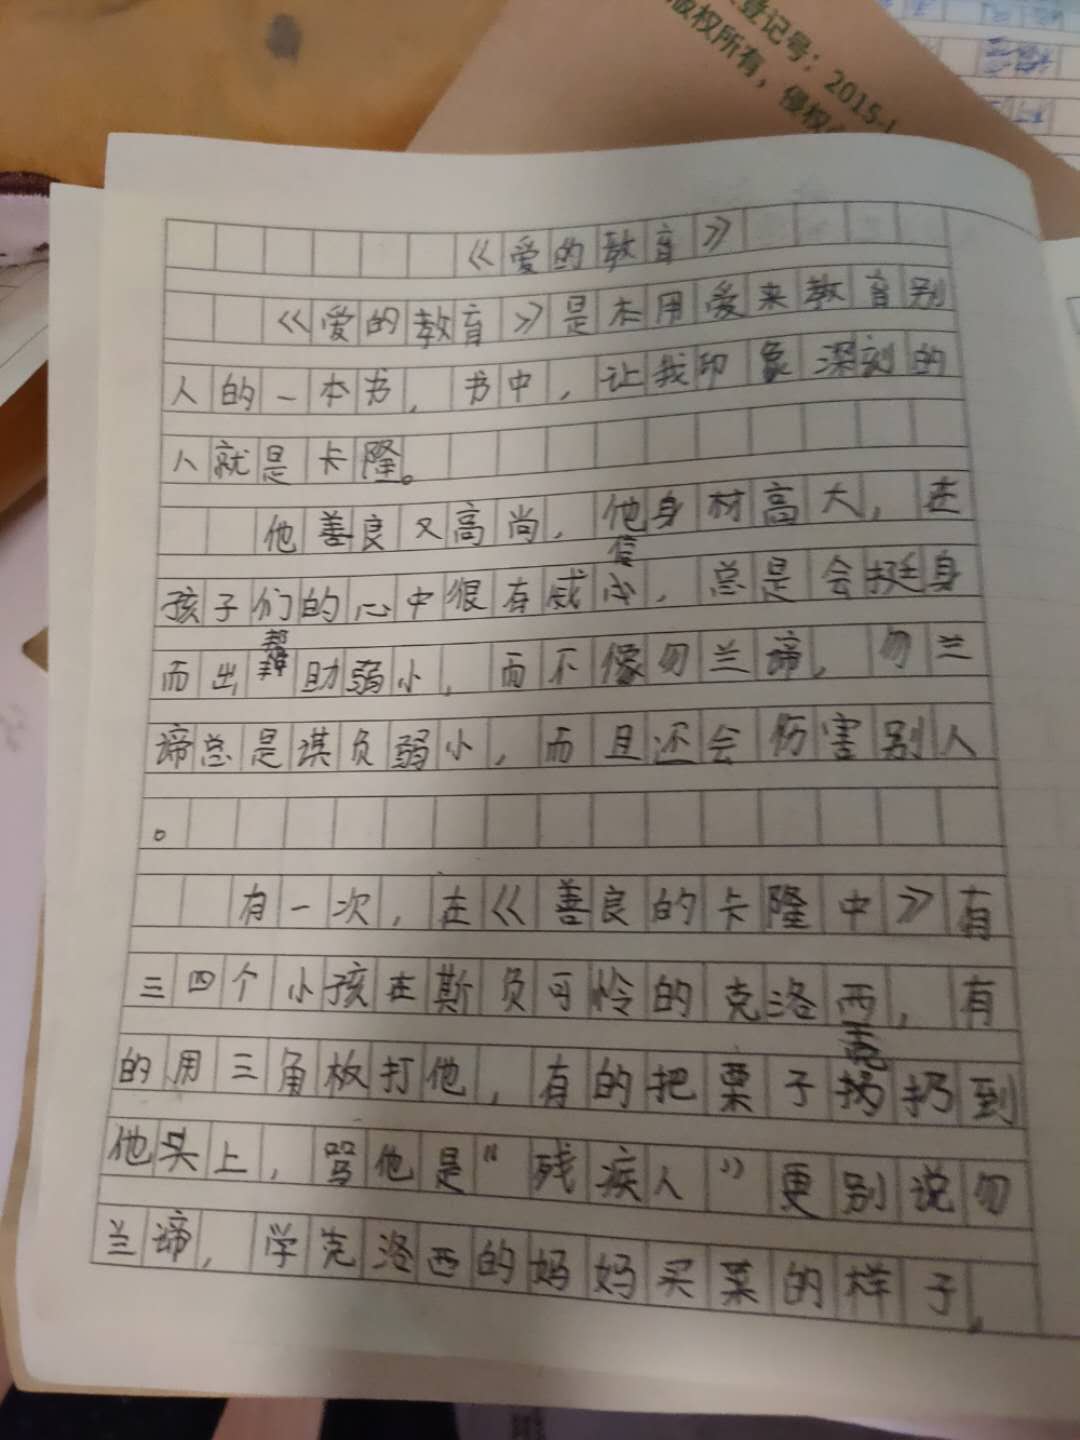 登记号：2015-
版权所有，侵权
《爱的教育》
《爱的教育》是本用爱来教育别
人的一本书，书中，让我印象深刻的
人就是卡隆。
他善良又高尚，他身材高大，在
孩子们的心中很有威信，总是会挺身
而出帮助弱小，而不像勿兰谛，勿兰
谛总是谋负弱小，而且还会伤害别人
。
有一次，在《善良的卡隆中》有
三四个小孩在斯负可怜的克洛西，有
的用三角板打他，有的把栗子壳扔到
他头上，骂他是"残疾人"更别说勿
兰谛，学克洛西的妈妈买菜的样子，